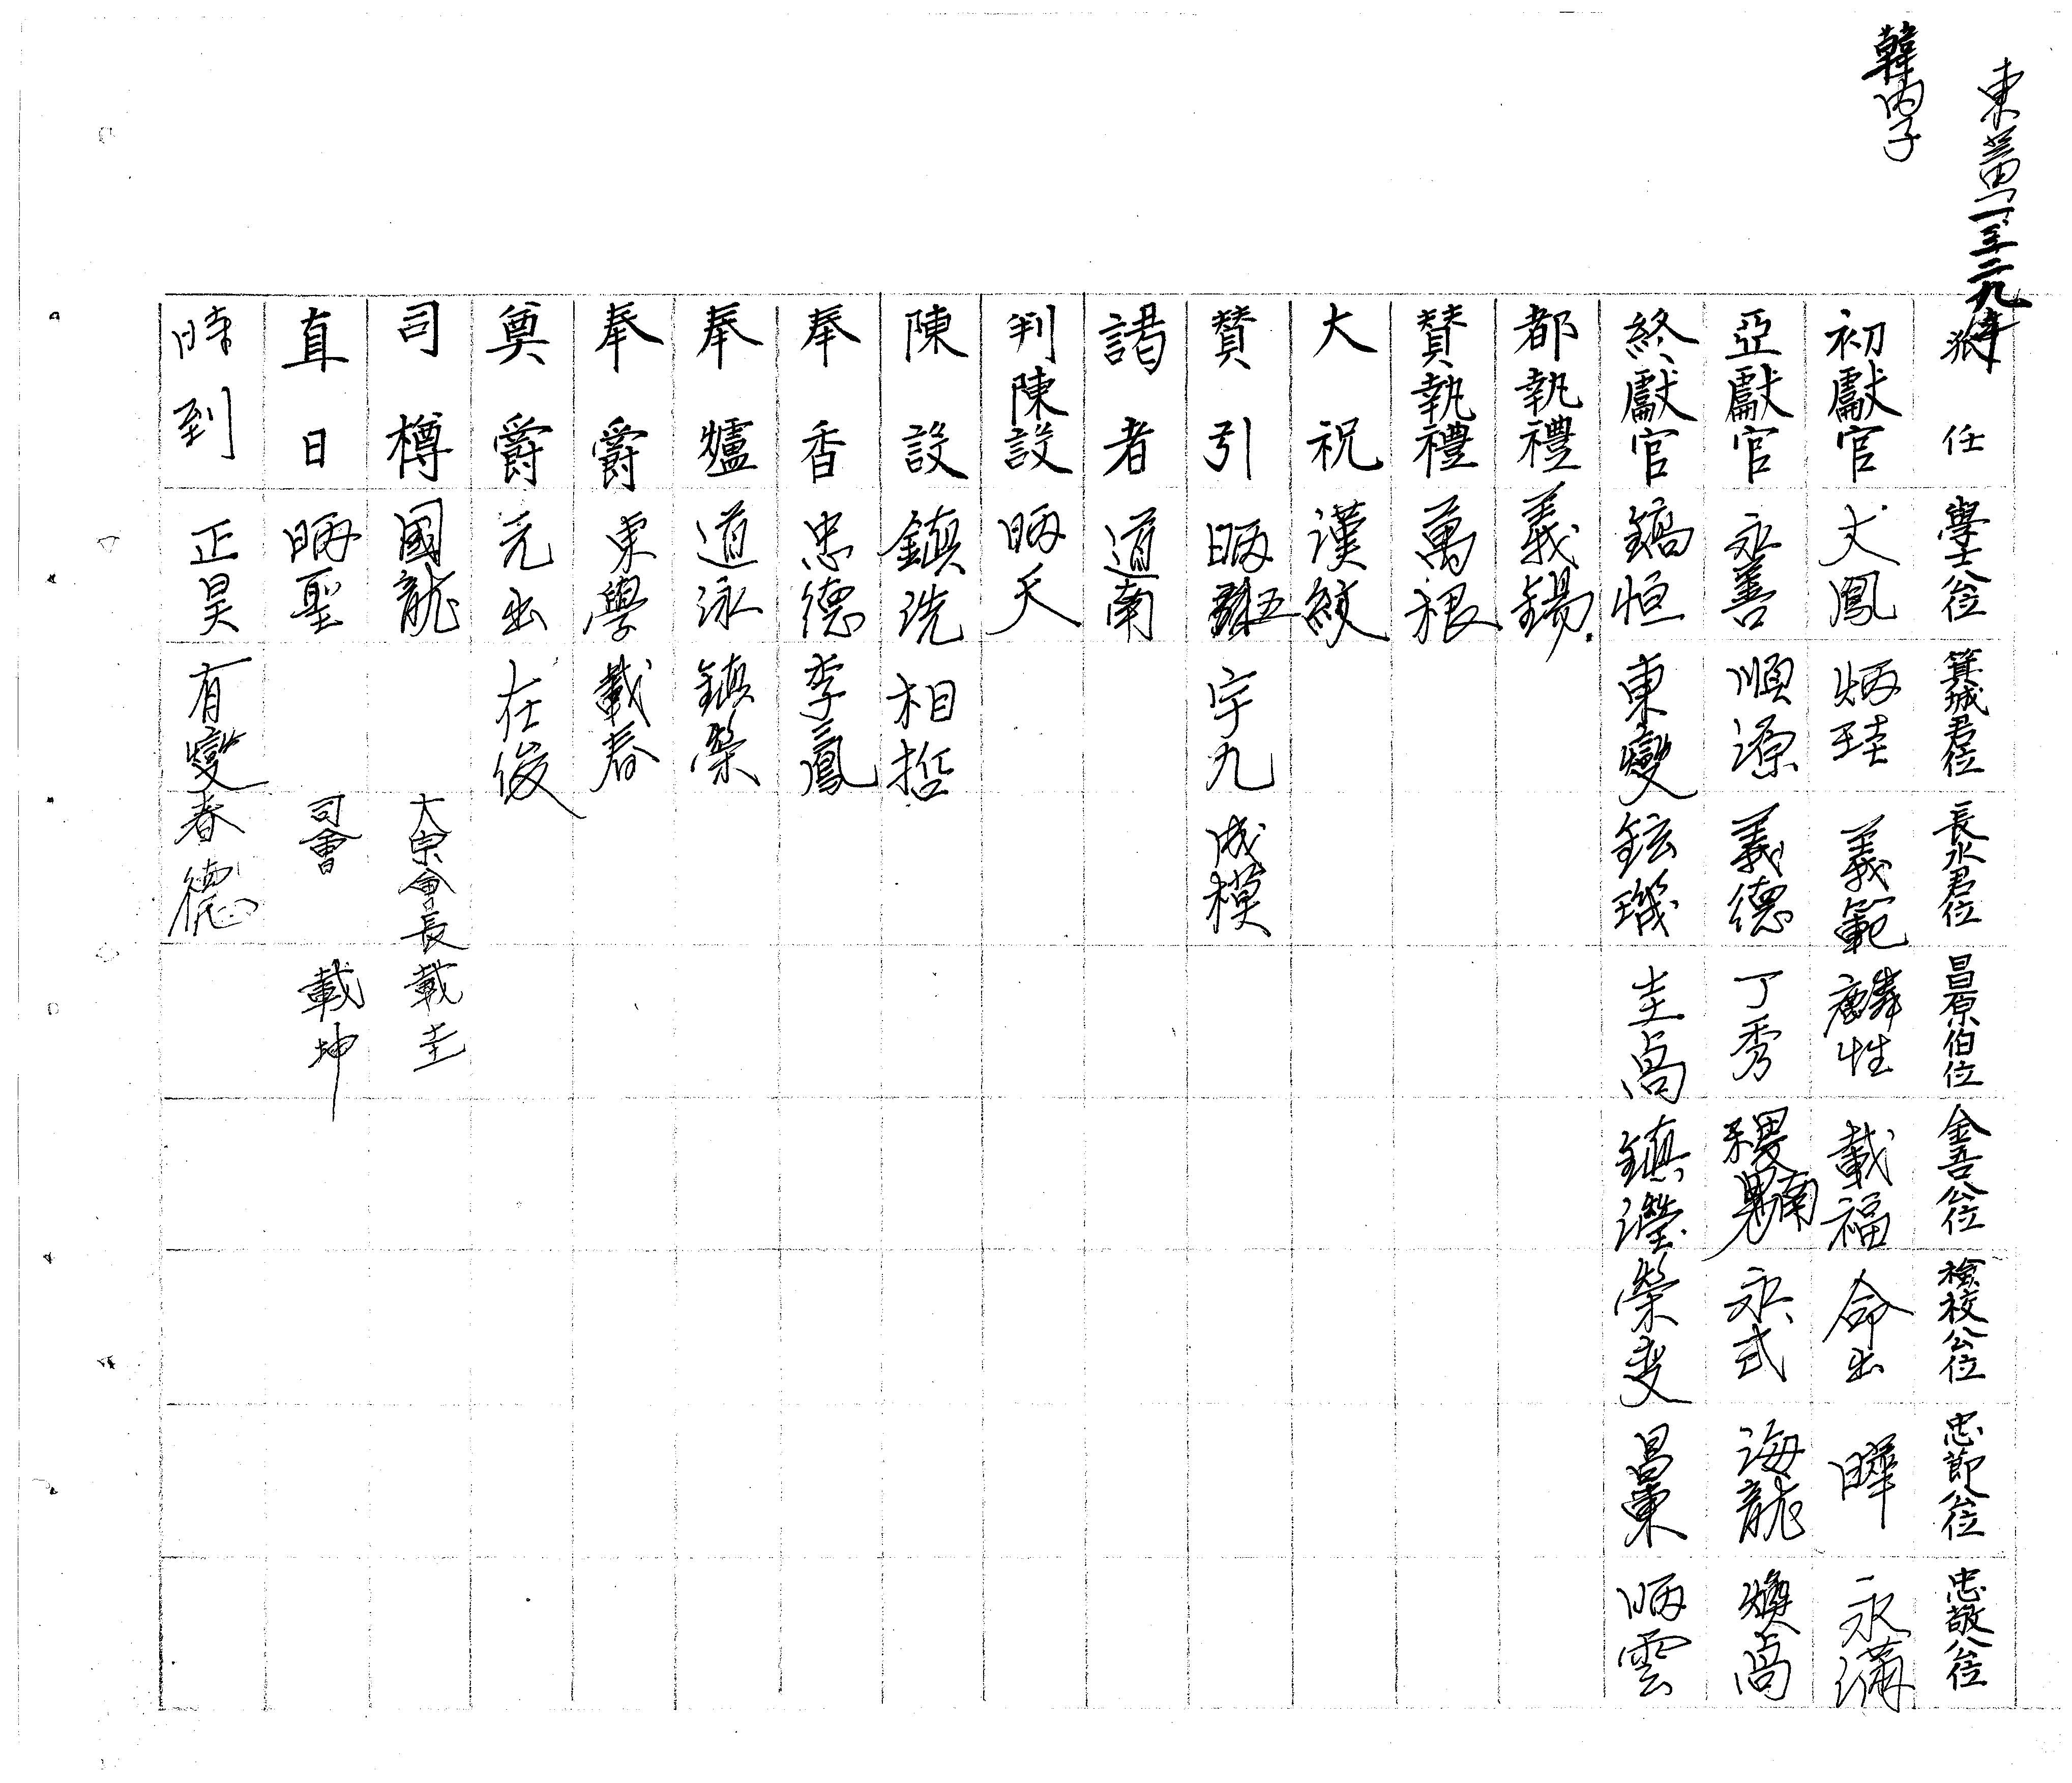 東黃一三二九年
韓內子
任 學士公位 箕城君位 長水君位 昌原伯位 金吾公位 檢校公位 忠節公位 忠敬公位
初獻官 文鳳 炳珪 義範 麟性 載福 命出 曄 永滿
亞獻官 永善 順源 義德 丁秀 永式 海龍 煥卨
終獻官 鎬恒 東燮 鉉璣 圭卨 鎮瀅 榮燮 昌東 昞雲
都執禮 義錫
贊執禮 萬根
大祝 漢紋
贊引 昞五 宇九 成模
謁者 道南
判陳設 昞天
陳設 鎭洗 相哲
奉香 忠德 李鳳
奉爐 道泳 鎭榮
奉爵 東學 載春
奠爵 元出 在俊
司樽 國龍 大宗會長 載圭
直日 昞聖 司會 載坤
時到 正昊 有燮 春德